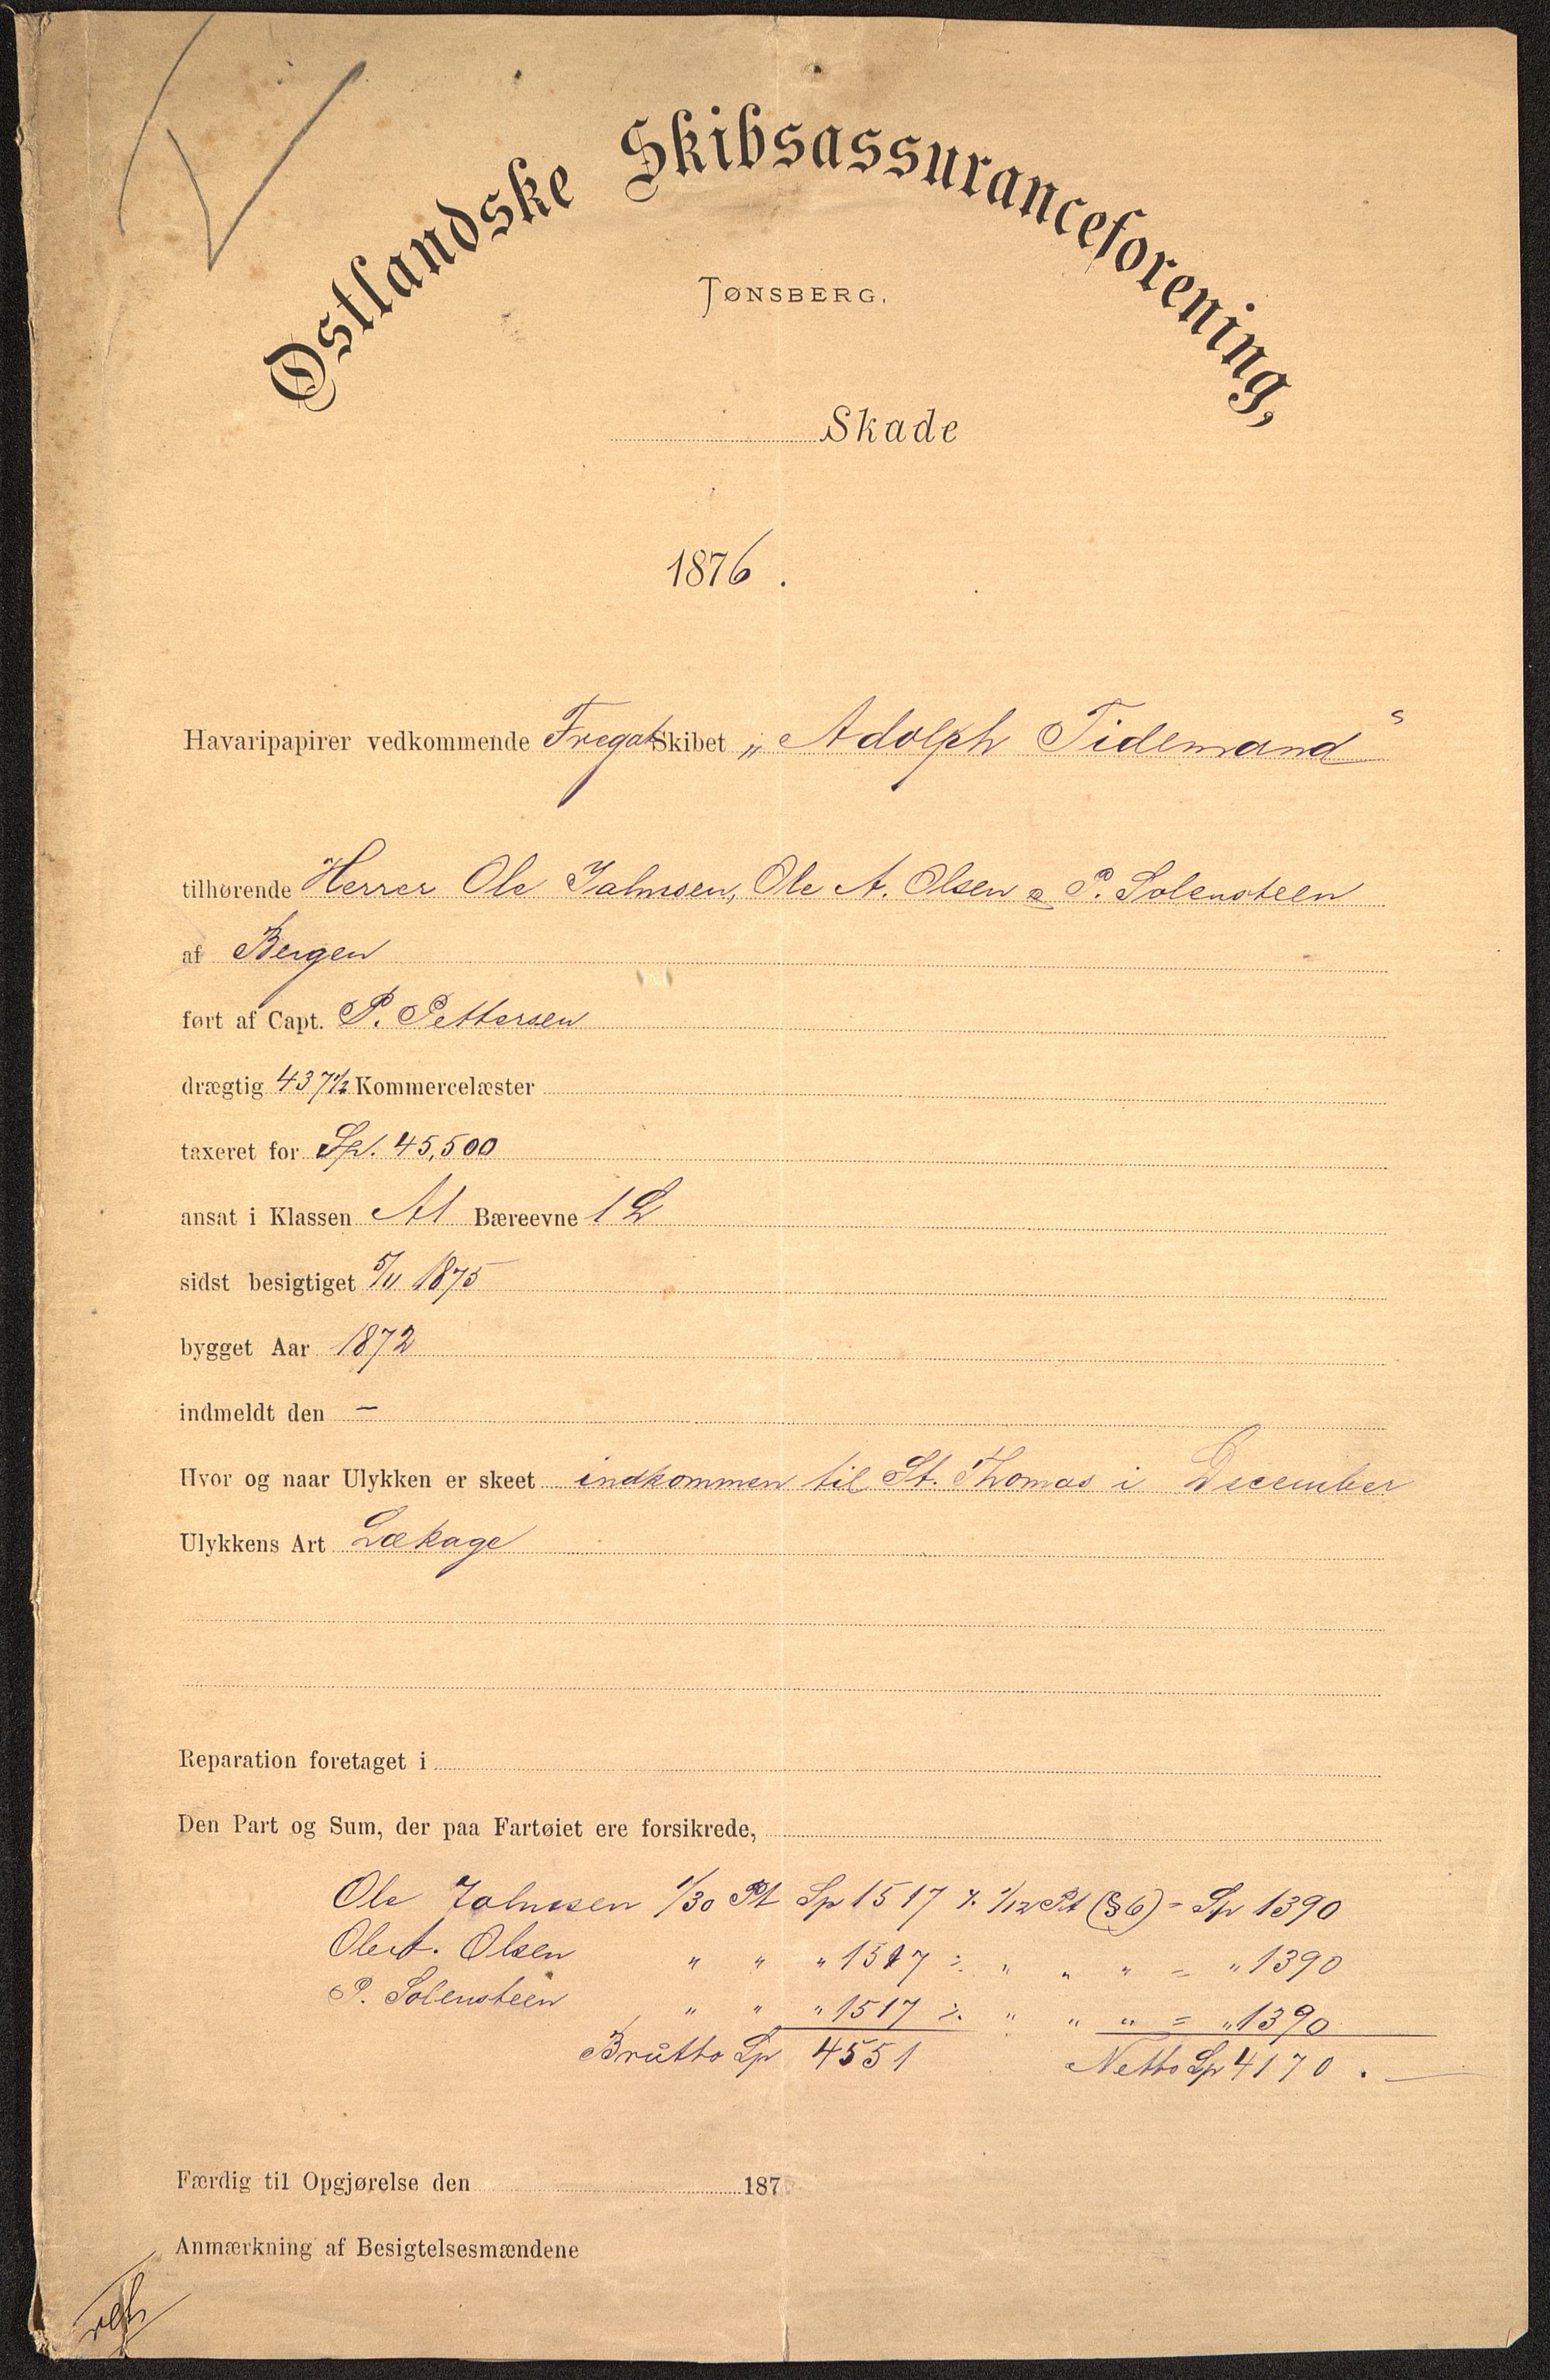 Østlandske Skibsassuranceforening,
TØNSBERG.
Skade
1876.
Havaripapirer vedkommende Fregatskibet „Adolph Tidemand“
tilhørende Herrer Ole Jalmsen, Ole A. Olsen & P. Solensteen
af Bergen
ført af Capt. P. Pettersen
drægtig 437½ Kommercelæster
taxeret for Sp. 45,500
ansat i Klassen A1 Bæreevne 1 L
sidst besigtiget 5/11 1875
bygget Aar 1872
indmeldt den —
Hvor og naar Ulykken er skeet indkommen til St. Thomas i December
Ulykkens Art Lækage
Reparation foretaget i
Den Part og Sum, der paa Fartøiet ere forsikrede,
Ole Jalmsen 1/30 Pt Sp 1517 ./. 1/12 Pt (§6) = Sp 1390
Ole A. Olsen " " " 1517 ./. " " " = " 1390
P. Solensteen " " " 1517 ./. " " " = " 1390
Brutto Sp 4551 Netto Sp 4170.
Færdig til Opgjørelse den 187
Anmærkning af Besigtelsesmændene